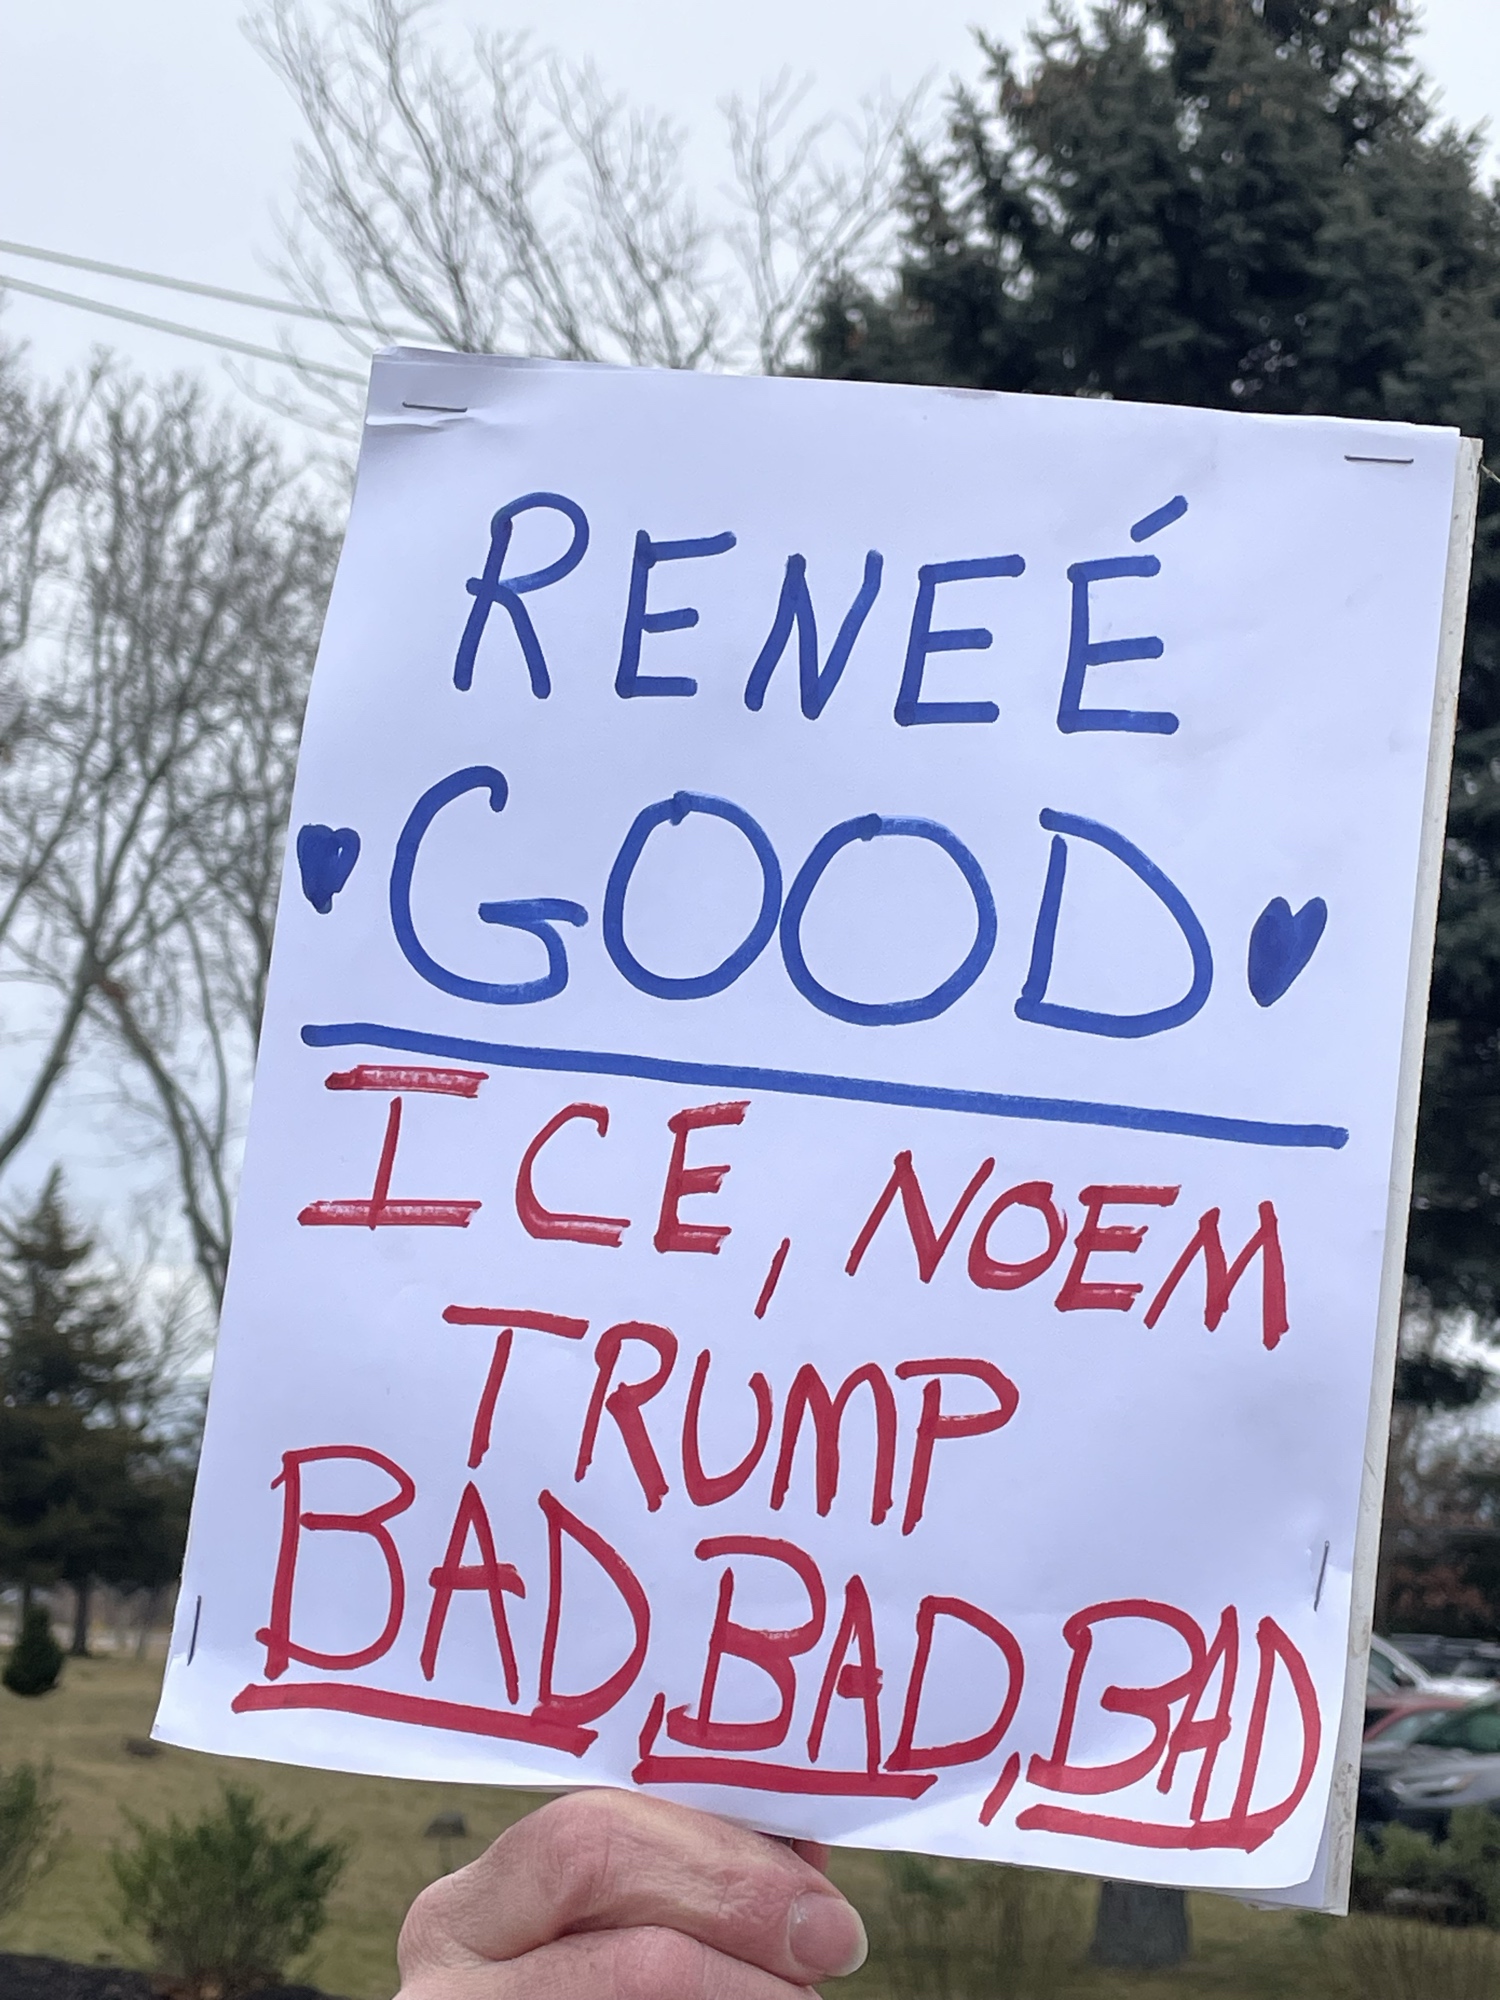 RENEÉ
♥GOOD♥
ICE, NOEM
TRUMP
BAD, BAD, BAD